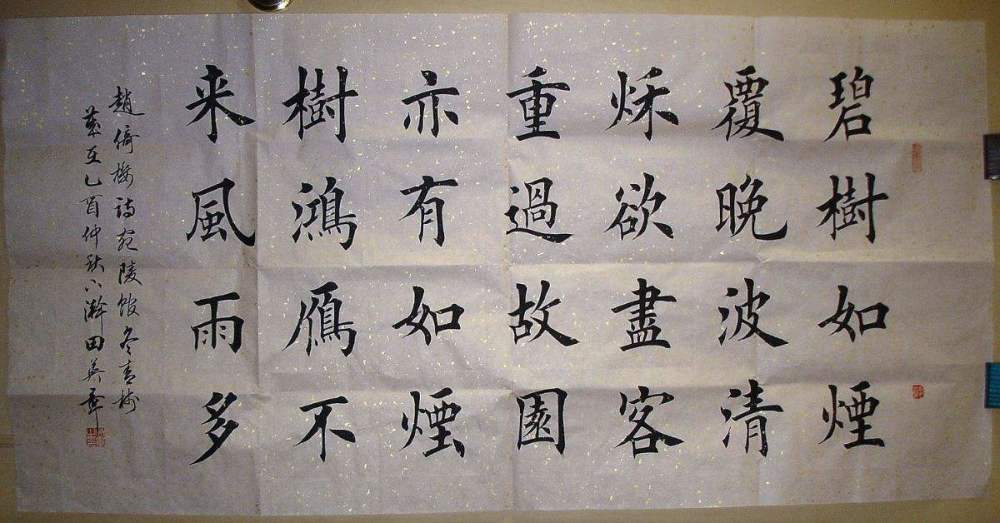 碧樹如煙
覆晚波清
秌欲盡客
重過故園
亦有如煙
樹鴻鴈不
来風雨多
趙倚樓詩宛陵館冬青樹
歲在乙酉仲秋田英章